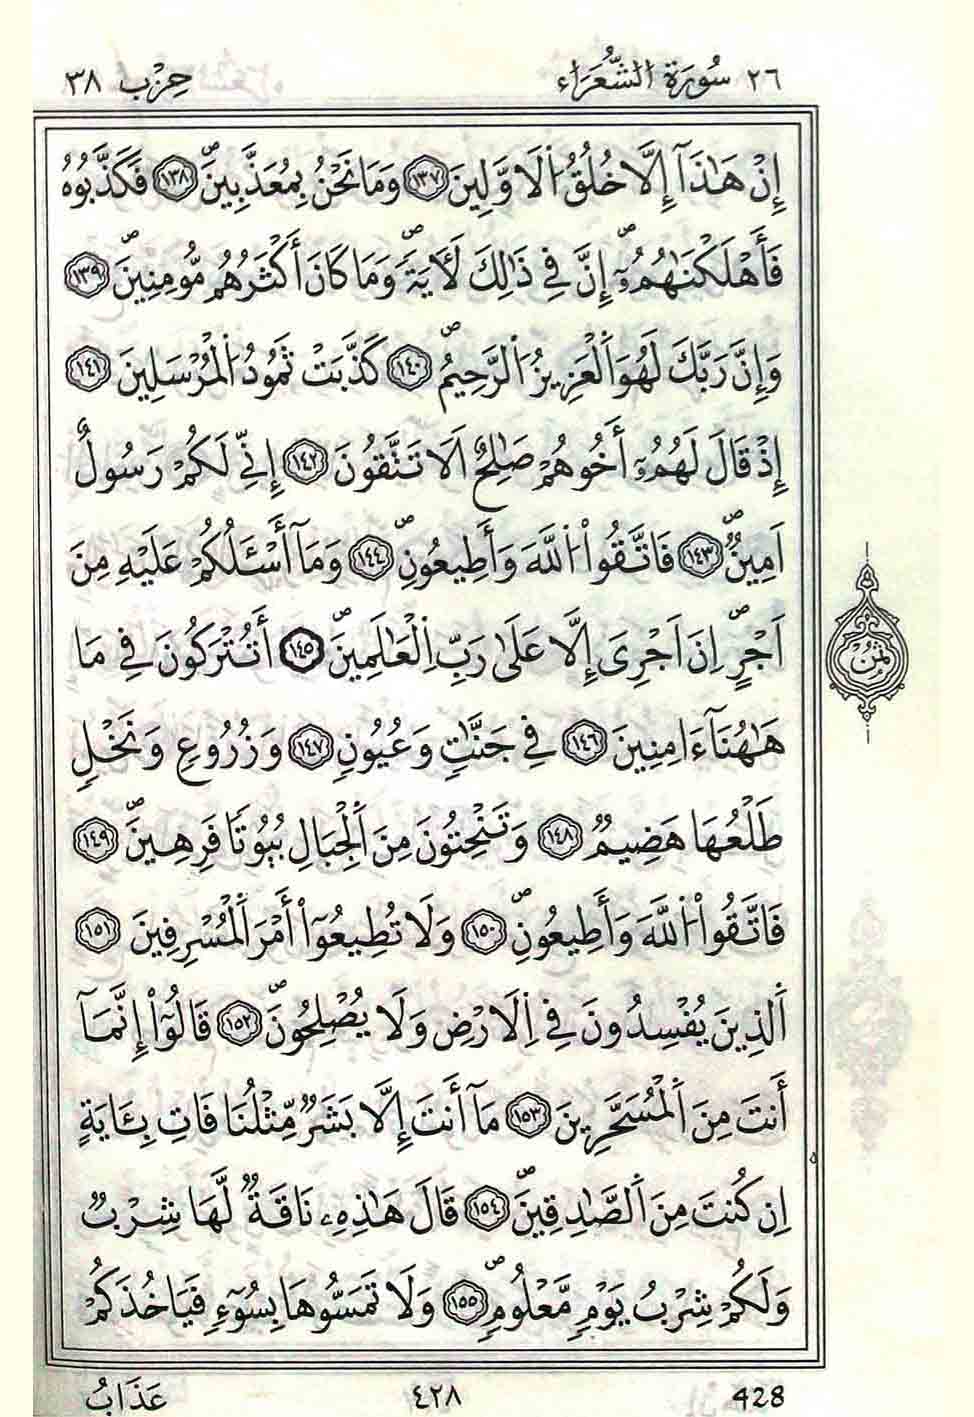 ٢٦ سُورَةُ الشُّعَرَاء حِزْب ٣٨
إِنْ هَٰذَآ إِلَّا خُلُقُ اُ۬لَاوَّلِينَ ١٣٧ وَمَا نَحْنُ بِمُعَذَّبِينَۖ ١٣٨ فَكَذَّبُوهُ
فَأَهْلَكْنَٰهُمُۥٓۖ إِنَّ فِي ذَٰلِكَ لَأٓيَةٗۖ وَمَا كَانَ أَكْثَرُهُم مُّومِنِينَۖ ١٣٩
وَإِنَّ رَبَّكَ لَهُوَ اَ۬لْعَزِيزُ اُ۬لرَّحِيمُۖ ١٤٠ كَذَّبَتْ ثَمُودُ اُ۬لْمُرْسَلِينَ ١٤١
إِذْ قَالَ لَهُمُۥٓ أَخُوهُمْ صَٰلِحٌ اَلَا تَتَّقُونَ ١٤٢ إِنِّي لَكُمْ رَسُولٌ
اَمِينٞۖ ١٤٣ فَاتَّقُواْ اُ۬للَّهَ وَأَطِيعُونِۖ ١٤٤ وَمَآ أَسْـَٔلُكُمْ عَلَيْهِ مِنَ
اَجْرٍۖ اِنَ اَجْرِىَ إِلَّا عَلَىٰ رَبِّ اِ۬لْعَٰلَمِينَۖ ١٤٥ أَتُتْرَكُونَ فِي مَا
هَٰهُنَآ ءَامِنِينَ ١٤٦ فِي جَنَّٰتٖ وَعُيُونٖ ١٤٧ وَزُرُوعٖ وَنَخْلٖ
طَلْعُهَا هَضِيمٞ ١٤٨ وَتَنْحِتُونَ مِنَ اَ۬لْجِبَالِ بُيُوتاٗ فَرِهِينَۖ ١٤٩
فَاتَّقُواْ اُ۬للَّهَ وَأَطِيعُونِۖ ١٥٠ وَلَا تُطِيعُوٓاْ أَمْرَ اَ۬لْمُسْرِفِينَ ١٥١
اَ۬لذِينَ يُفْسِدُونَ فِي اِ۬لَارْضِ وَلَا يُصْلِحُونَۖ ١٥٢ قَالُوٓاْ إِنَّمَآ
أَنتَ مِنَ اَ۬لْمُسَحَّرِينَ ١٥٣ مَآ أَنتَ إِلَّا بَشَرٞ مِّثْلُنَا فَاتِ بِـَٔايَةٍ
اِن كُنتَ مِنَ اَ۬لصَّٰدِقِينَۖ ١٥٤ قَالَ هَٰذِهِۦ نَاقَةٞ لَّهَا شِرْبٞ
وَلَكُمْ شِرْبُ يَوْمٖ مَّعْلُومٖۖ ١٥٥ وَلَا تَمَسُّوهَا بِسُوٓءٖ فَيَاخُذَكُمْ
ثُمُن
428 ٤٢٨ عَذَابُ